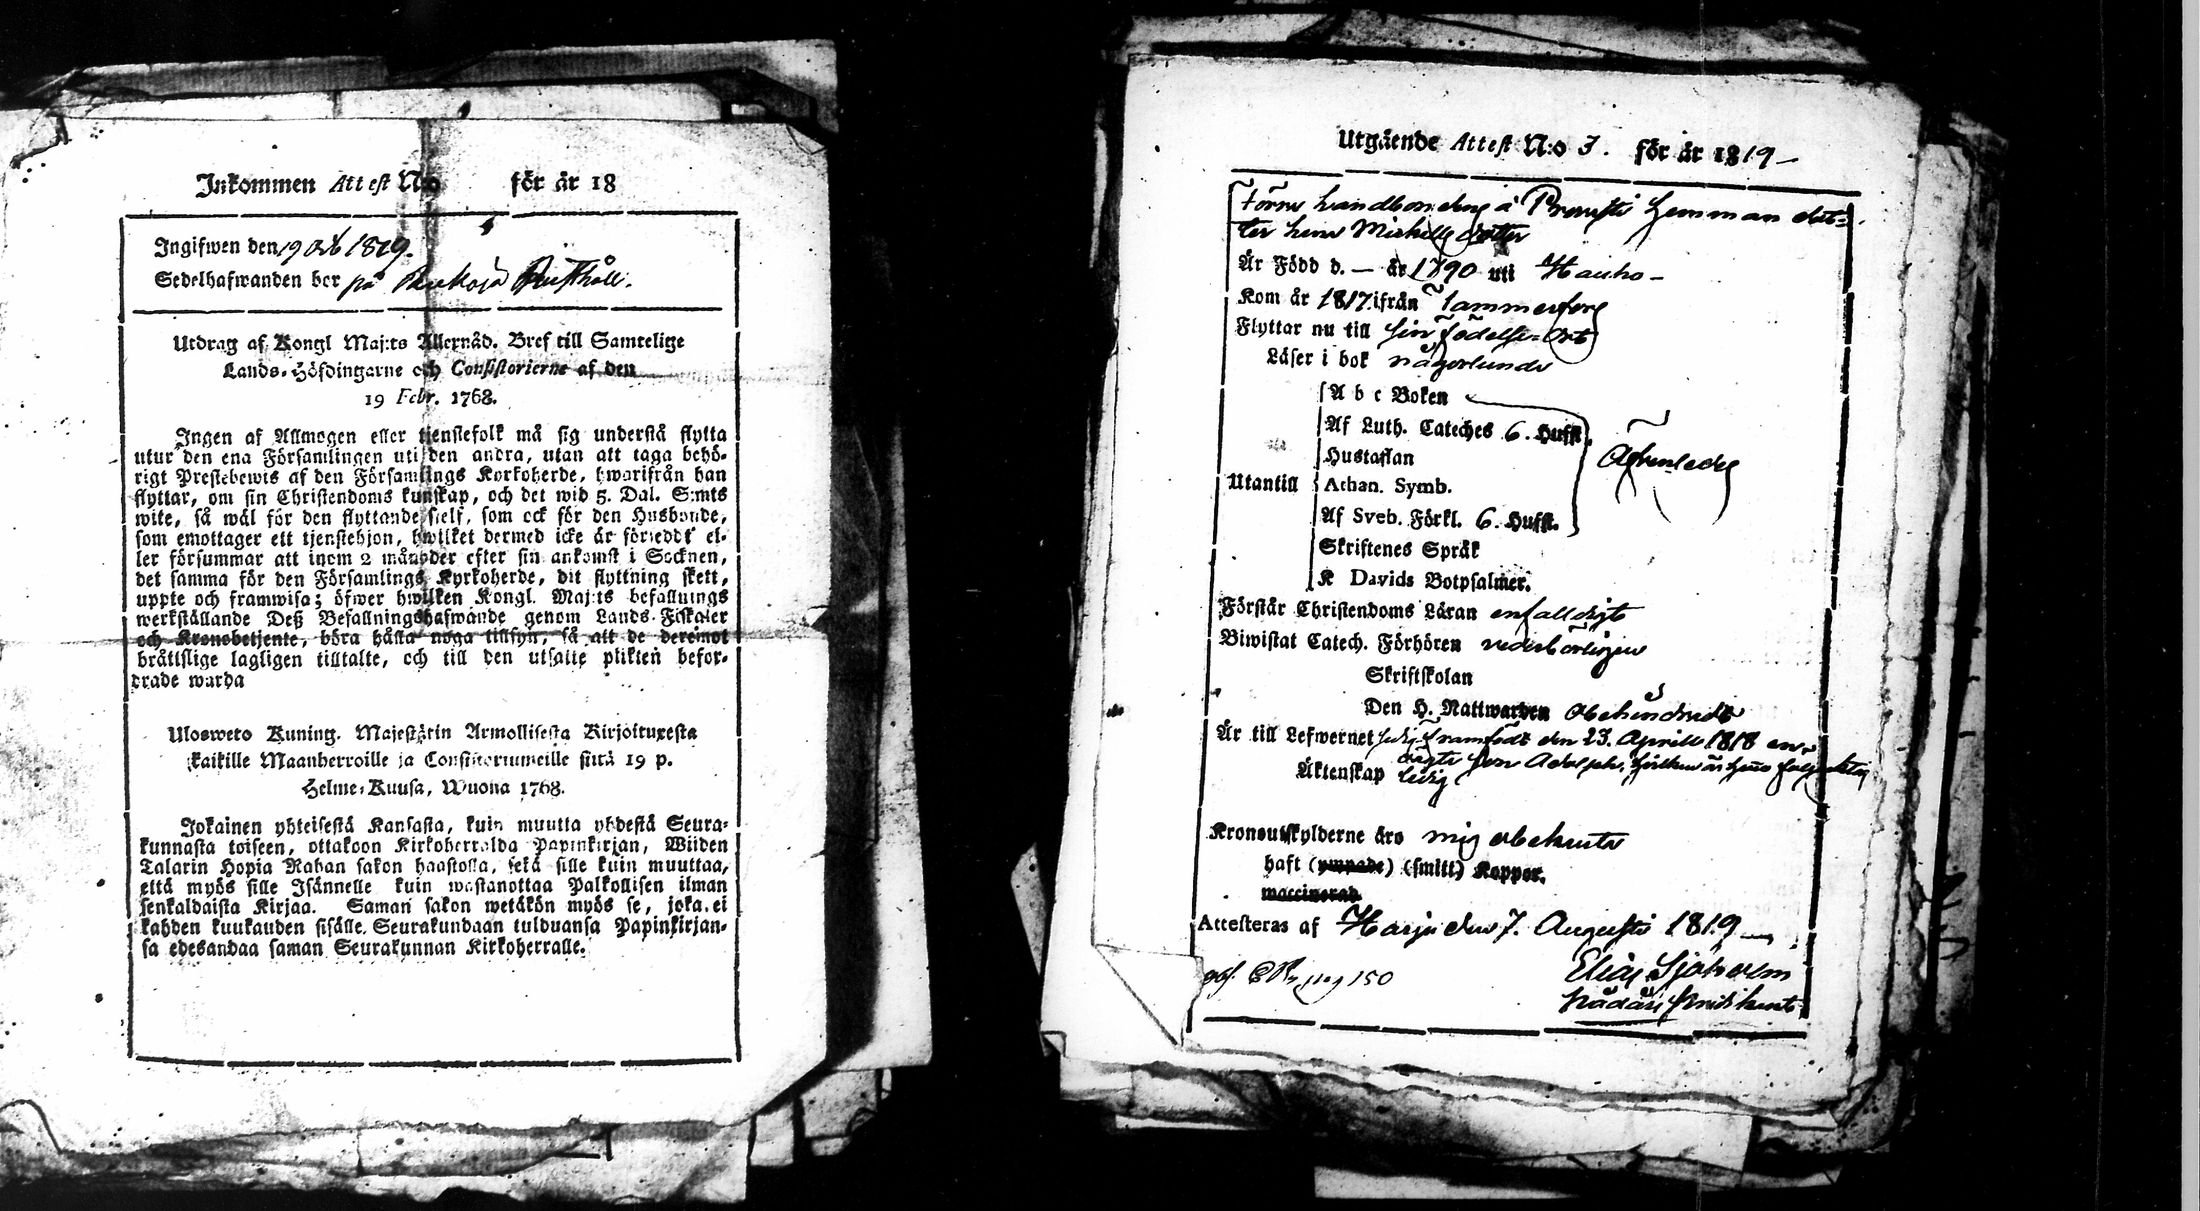 Inkommen Attest N:o för år 18
Ingifwen den 19 Octb 1819.
Sedelhafwanden bor på Rusthåll.
Utdrag af Kongl Maj:ts Allernåd. Bref till Samtelige
Lands-Höfdingarne och Consistorierne af den
19 Febr. 1768.
Ingen af Allmogen eller tjenstefolk må sig understå flytta
utur den ena Församlingen uti den andra, utan att taga behö-
rigt Prestebewis af den Församlings Kyrkoherde, hwarifrån han
flyttar, om sin Christendoms kunskap, och det wid 5. Dal. S:mts
wite, så wäl för den flyttande sielf, som ock för den Husbonde,
som emottager ett tjenstehjon, hwilket dermed icke är försedt el-
ler försummar att inom 2 månader efter sin ankomst i Socknen,
det samma för den Församlings Kyrkoherde, dit flyttning skett,
uppte och framwisa; öfwer hwilken Kongl. Maj:ts befallnings
werkställande Deß Befallningshafwande genom Lands-Fiskaler
och Kronobetjente, böra hålla noga tillsyn, så att de deremot
bråttslige lagligen tilltalte, och till den utsatte plikten befor-
drade warda
Ulosweto Kuning. Majestätin Armollisesta Kirjoituxesta
kaikille Maanherroille ja Consistoriumeille siitä 19 p.
Helme-Kuusa, Wuona 1768.
Jokainen yhteisestä Kansasta, kuin muutta yhdestä Seura-
kunnasta toiseen, ottakoon Kirkoherralda Papinkirjan, Wiiden
Talarin Hopia Rahan sakon haastolla, sekä sille kuin muuttaa,
että myös sille Isännelle kuin wastanottaa Palkollisen ilman
senkaldaista Kirjaa. Saman sakon wetäkön myös se, joka ei
kahden kuukauden sisälle Seurakundaan tulduansa Papinkirjan-
sa edesandaa saman Seurakunnan Kirkoherralle.
Utgående Attest N:o 3. för år 1819
Förre landbondens å Prousti hemman dot-
ter Lena Michelsdotter
Är Född d. — år 1790 uti Hauho
Kom år 1817 ifrån Tammerfors
Flyttar nu till sin Födelse-Ort
Läser i bok någorlunda
A b c Boken
Af Luth. Cateches 6. Hufst.
Hustaflan
Utantill Athan. Symb.
Af Sveb. Förkl. 6. Hufst.
Skriftenes Språk
K Davids Botpsalmer.
Förstår Christendoms Läran enfalldigt
Biwistat Catech. Förhören wederbörligen
Skriftskolan
Den H. Nattwarden obehindradt
Är till Lefwernet framfödt den 23. Aprill 1818 en
ägta son Adolph, hvilken är
Äktenskap ledig
Kronoutskylderne äro mig obekanta
haft (ympade) (smitt) Koppor.
waccinerad
Attesteras af Harju den 7. Augusti 1819
pag 150
Elias Sjöholm
Nådårs Predikant